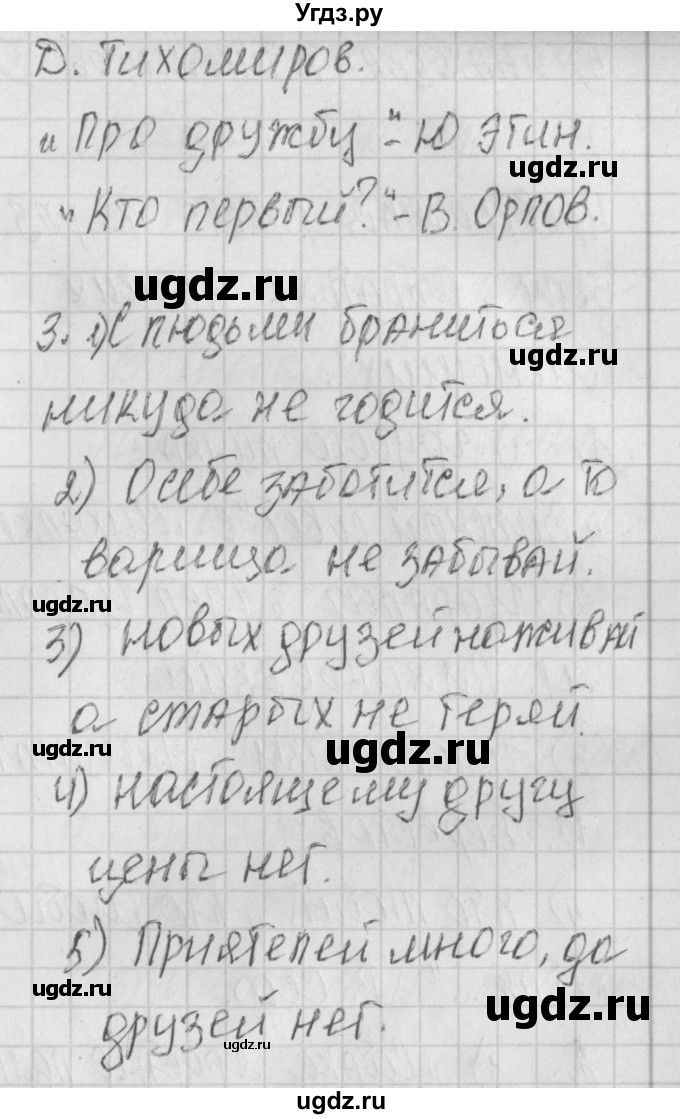 Угдз.ру
Д. Тихомиров.
"Про дружбу" - Ю Этин.
ugdz.ru
"Кто первый?" - В. Орлов.
ugdz.ru
3. 1) С людьми браниться
ugdz.ru
никуда не годится.
2) О себе заботится, а то
варища не забывай.
ugdz.ru
3) новых друзей наживай
а старых не теряй.
ugdz.ru
ugdz.ru
4) настоящему другу
цены нет.
5) Приятелей много, да
ugdz.ru
ugdz.ru
друзей нет.
ugdz.ru
ugdz.ru